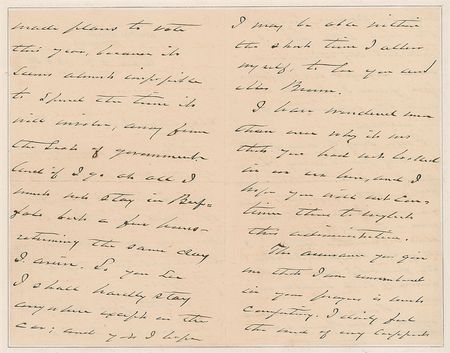 made plans to vote
this year, because it
seems almost impossible
to spend the time it
will involve, away from
the seat of government.
And if I go at all I
must not stay in Buf-
falo but a few hours -
returning the same day
I arrive. So you see
I shall hardly stay
anywhere except in the
car; and yet I hope
I may be able within
the short time I allow
myself, to see you and
Mrs Brown.
I have wondered more
than once why it was
that you had not looked
in on us here, and I
hope you will not con-
tinue thus to neglect
this administration.
The assurance you give
me that I am remembered
in your prayers is most
comforting. I daily feel
the need of my support